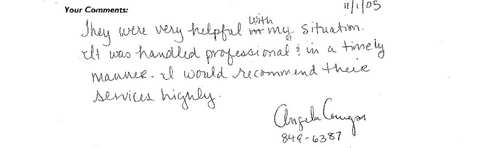 11/1/05
Your Comments:
They were very helpful with my situation.
It was handled professional & in a timely
manner. I would recommend their
services highly.
Angela
849-6387